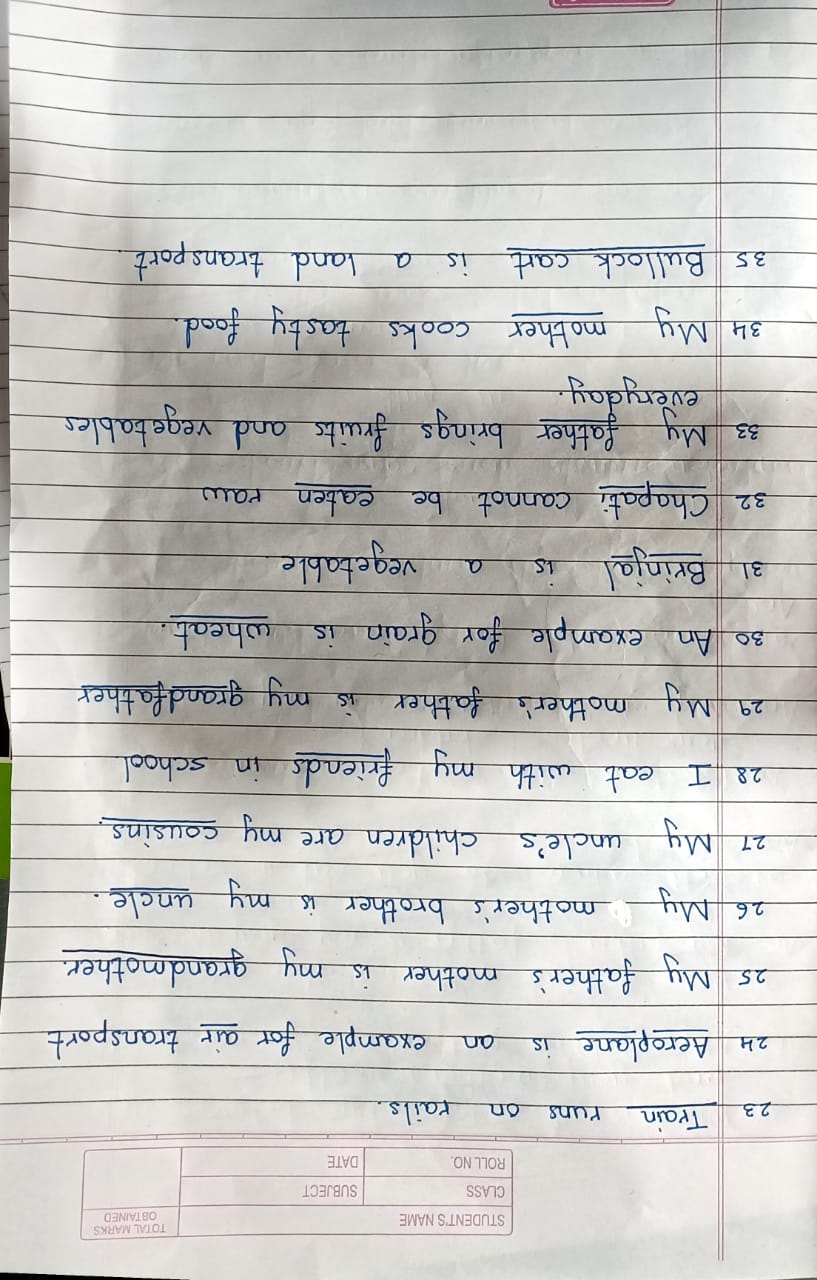 STUDENT'S NAME
TOTAL MARKS OBTAINED
CLASS SUBJECT
ROLL NO. DATE
23 Train runs on rails.
24 Aeroplane is an example for air transport
25 My father's mother is my grandmother.
26 My mother's brother is my uncle.
27 My uncle's children are my cousins.
28 I eat with my friends in school
29 My mother's father is my grandfather
30 An example for grain is wheat.
31 Brinjal is a vegetable
32 Chapati cannot be eaten raw
33 My father brings fruits and vegetables
everyday.
34 My mother cooks tasty food.
35 Bullock cart is a land transport.